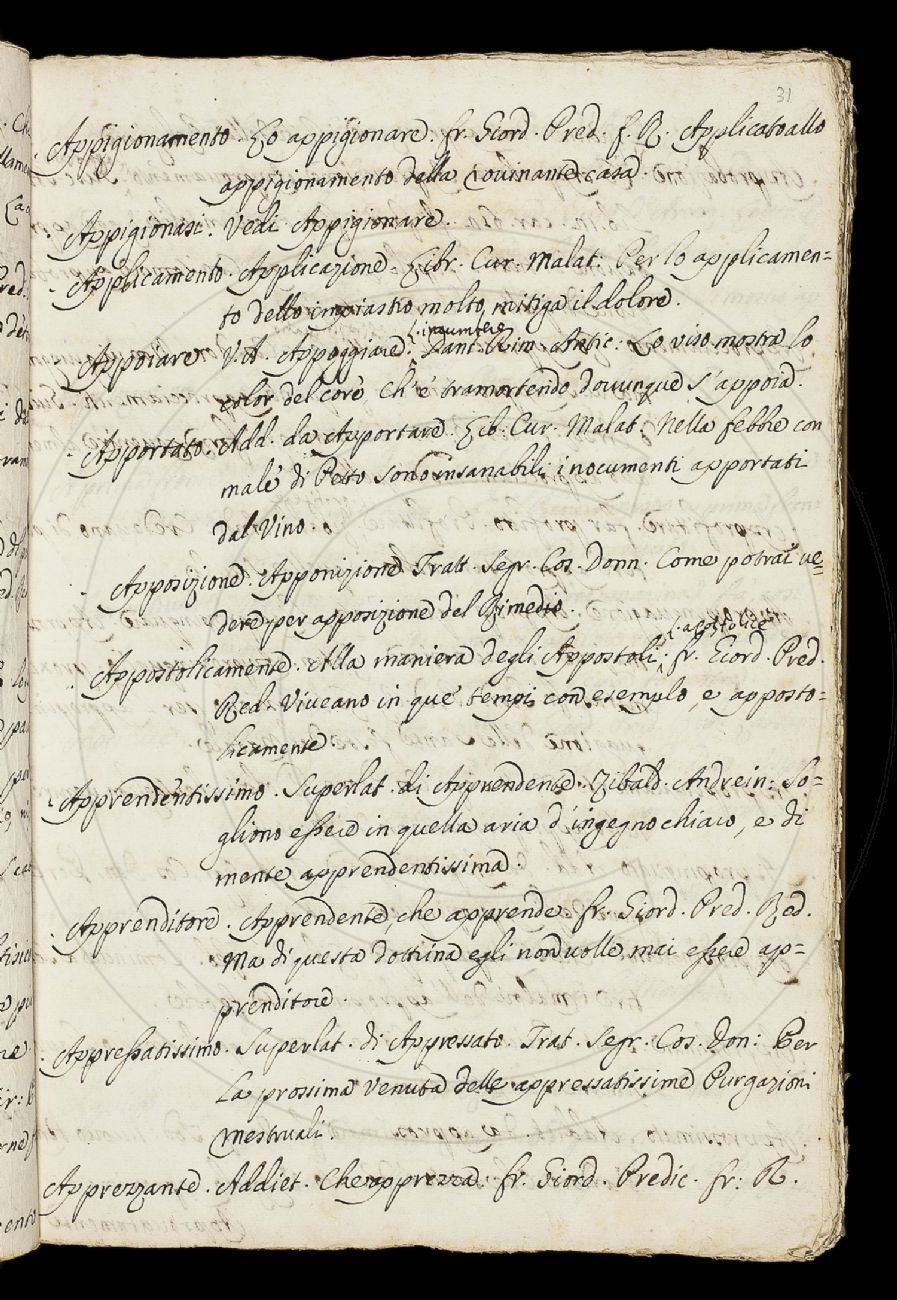 31
Appigionamento. Lo appigionare. fr. Giord. Pred. f. R. Applicato allo
appigionamento della rovinante casa.
Appigionasi. Vedi Appigionare.
Applicamento. Applicazione. Libr. Cur. Malat: Per lo applicamen=
to dello impiastro molto mitiga il dolore.
L. incumbere
Appoiare V.A. Appoggiare. Dant. Rim. Antic: Lo viso mostra lo
color del core, Ch'è tramortendo dovunque s'appoia.
Apportato. Add. da Apportare. Lib. Cur. Malat. Nella febbre con
male di Petto sono insanabili i nocumenti apportati
dal Vino.
Apposizione. Apponizione Tratt. Segr. Cos. Donn. Come potrai ve=
dere per apposizione del Rimedio
L. apostolice
Appostolicamente. Alla maniera degli Appostoli. fr. Giord. Pred.
Red. Viveano in que' tempi con esemplo, e apposto=
licamente
Apprendentissimo. Superlat. di Apprendente. Zibald. Andrein: So=
gliono essere in quella aria d'ingegno chiaro, e di
mente apprendentissima.
Apprenditore. Apprendente, che apprende fr. Giord. Pred. Red.
Ma di questa dottrina egli non volle mai essere ap=
prenditore.
Appressatissimo. Superlat. di Appressato. Trat. Segr. Cos. Don: Per
La prossima venuta delle appressatissime Purgazioni
mestruali.
Apprezzante. Addiet. Che apprezza. fr. Giord. Predic. fr: R.